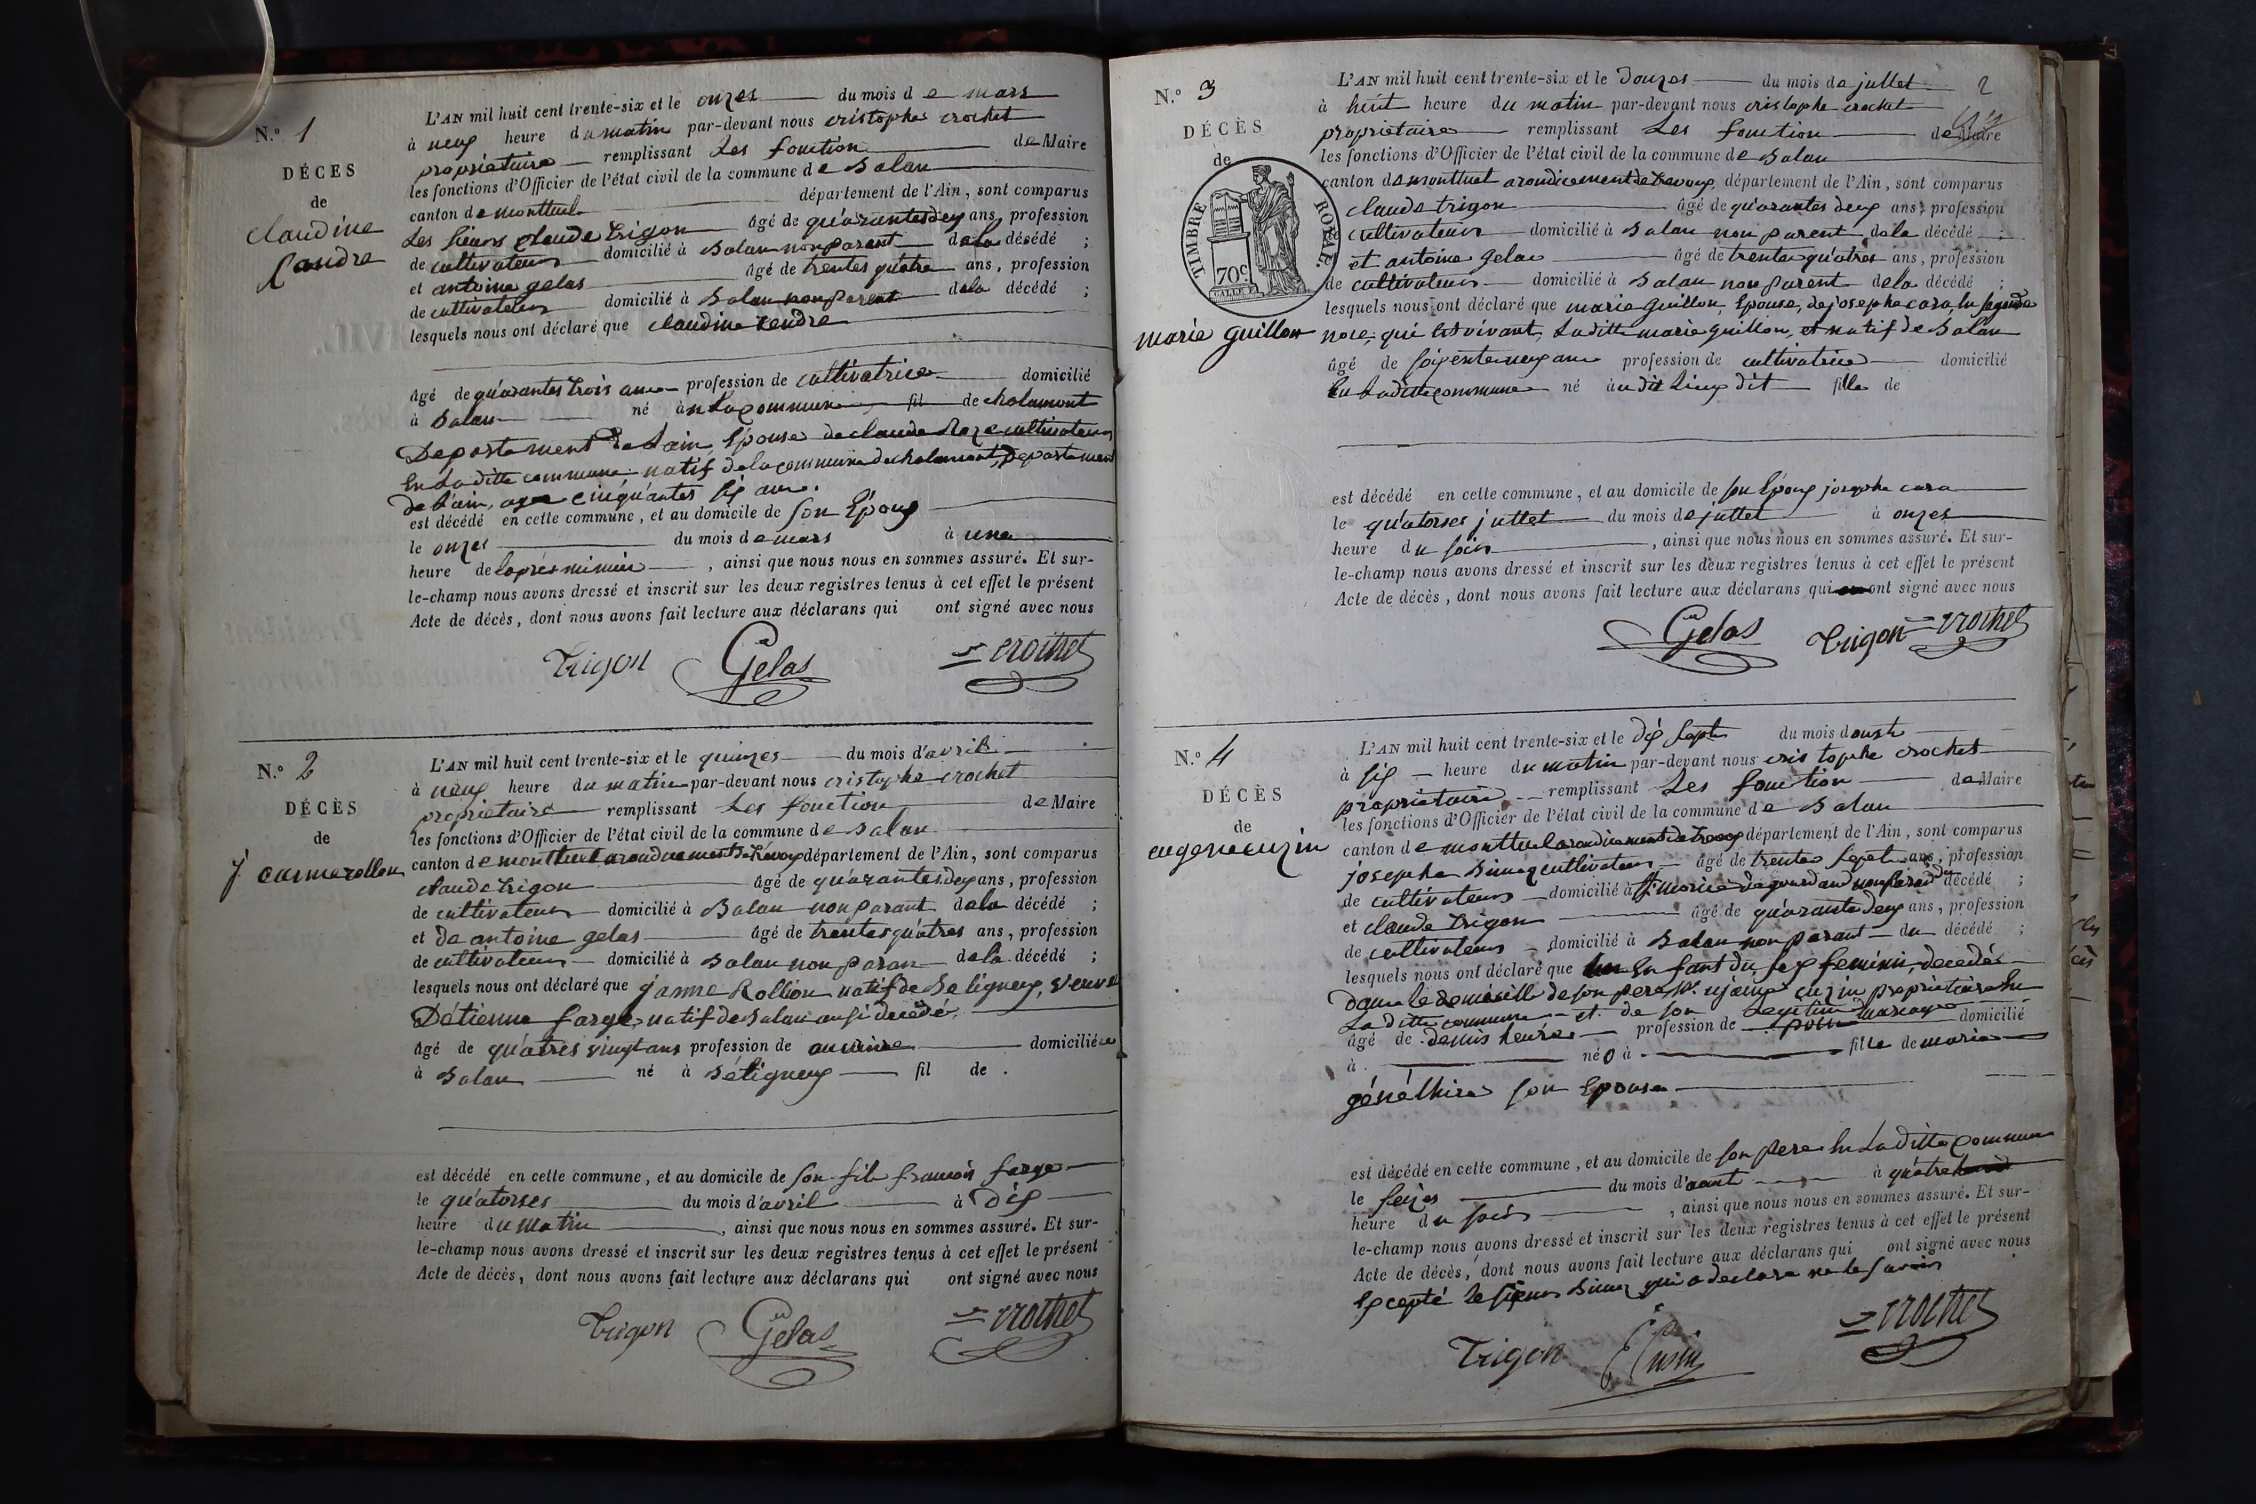 N.º 1
DÉCES
de
claudine
Candre
L'AN mil huit cent trente-six et le onzes du mois de mars
à neuf heure du matin par-devant nous cristophe crochet
propriétaire remplissant Les fonction de Maire
les fonctions d'Officier de l'état civil de la commune de Balan
canton de montluel département de l'Ain, sont comparus
Les sieurs claude trigon âgé de quarantes deux ans, profession
de cultivateur domicilié à Balan non parent de la décédé ;
et antoine gelas âgé de trentes quatre ans, profession
de cultivateur domicilié à Balan non parent de la décédé ;
lesquels nous ont déclaré que claudine
âgé de quarantes trois ans profession de cultivatrice domicilié
à Balan né à la commune fil de chalamont
Departement de Lain, Epouse de claude Roze cultivateur
En La ditte commune natif de la commune de chalamont, Departement
de L'ain, age cinquantes six ans.
est décédé en cette commune, et au domicile de son Epoux
le onzes du mois de mars à une
heure de lapres , ainsi que nous nous en sommes assuré. Et sur-
le-champ nous avons dressé et inscrit sur les deux registres tenus à cet effet le présent
Acte de décès, dont nous avons fait lecture aux déclarans qui ont signé avec nous
Trigon Gelas Crochet
N.º 2
DÉCÈS
de
L'AN mil huit cent trente-six et le quinzes du mois d'avril
à neuf heure du matin par-devant nous cristophe crochet
propriétaire remplissant Les fonction de Maire
les fonctions d'Officier de l'état civil de la commune de Balan
canton de montluel arondicement de trevoux département de l'Ain, sont comparus
claude trigon âgé de quarantes deux ans, profession
de cultivateur domicilié à Balan non parant de la décédé ;
et de antoine gelas âgé de trentes quatres ans, profession
de cultivateur domicilié à Balan non paran de la décédé ;
lesquels nous ont déclaré que janne Rollion natif de Beligneux, veuve
D'étienne farge, natif de Balan ausi décédé,
âgé de quatres vingt ans profession de domicilié
à Balan né à Béligneux fil de .
est décédé en cette commune, et au domicile de son fils francois farge
le quatorses du mois d'avril à Dix
heure du matin , ainsi que nous nous en sommes assuré. Et sur-
le-champ nous avons dressé et inscrit sur les deux registres tenus à cet effet le présent
Acte de décès, dont nous avons fait lecture aux déclarans qui ont signé avec nous
Trigon Gelas Crochet
2
N.º 3
DÉCÈS
de
TIMBRE ROYAL
70c
marie guillon
L'AN mil huit cent trente-six et le Douzes du mois de jullet
à huit heure du matin par-devant nous cristophe crochet
propriétaire remplissant Les fonction de Maire
les fonctions d'Officier de l'état civil de la commune de Balan
canton de montluel arondicement de trevoux, département de l'Ain, sont comparus
claude trigon âgé de quarantes deux ans, profession
cultivateur domicilié à Balan non parent de la décédé ;
et antoine gelas âgé de trentes quatres ans, profession
de cultivateur domicilié à Balan non parent de la décédé ;
lesquels nous ont déclaré que marie guillon, Epouse, de josephe cara, En segonde
noce, qui est vivant, La ditte marie guillon, et natif de Balan
âgé de soixente neuf ans profession de cultivatrice domicilié
En La ditte commune né audit Lieux dit fille de
est décédé en cette commune, et au domicile de son Epoux josephe cara
le quatorses jullet du mois de jullet à onzes
heure du soir , ainsi que nous nous en sommes assuré. Et sur-
le-champ nous avons dressé et inscrit sur les deux registres tenus à cet effet le présent
Acte de décès, dont nous avons fait lecture aux déclarans qui ont signé avec nous
Gelas Trigon Crochet
N.º 4
DÉCÈS
de
eugene cuzin
L'AN mil huit cent trente-six et le dix sept du mois d'oust
à six heure du matin par-devant nous cristophe crochet
propriétaire remplissant Les fonction de Maire
les fonctions d'Officier de l'état civil de la commune de Balan
canton de montluel arondicement de trevoux département de l'Ain, sont comparus
josephe cultivateur âgé de trentes sept ans, profession
de cultivateur domicilié à St morice de gourdand non parend du décédé ;
et claude trigon âgé de quarante deux ans, profession
de cultivateur domicilié à Balan non parant du décédé ;
lesquels nous ont déclaré que En fant du sex feminin, decedés
dans le domicille de son pere, cuzin propriétaire En
La ditte commune et de son Legitime mariage
âgé de demis heure profession de domicilié
à né à fille de marie
son Epouse
est décédé en cette commune, et au domicile de son pere En La ditte commune
le seizes du mois d'aout à quatre
heure du soir , ainsi que nous nous en sommes assuré. Et sur-
le-champ nous avons dressé et inscrit sur les deux registres tenus à cet effet le présent
Acte de décès, dont nous avons fait lecture aux déclarans qui ont signé avec nous
Excepté le sieur qui a declare ne le savoir
Trigon Cusin Crochet